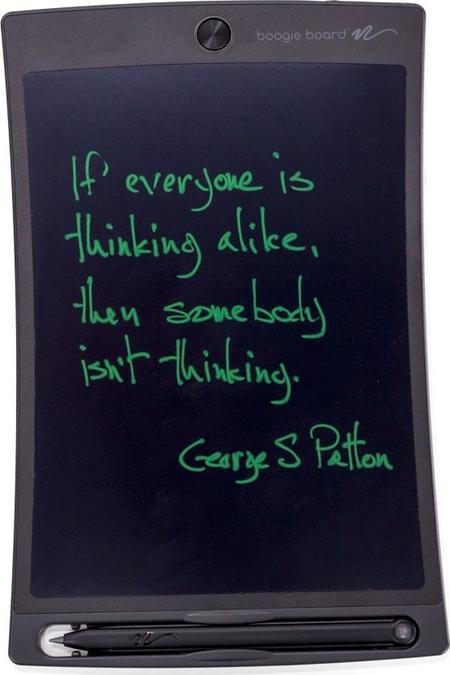 boogie board
If everyone is
thinking alike,
then somebody
isn't thinking.
George S Patton